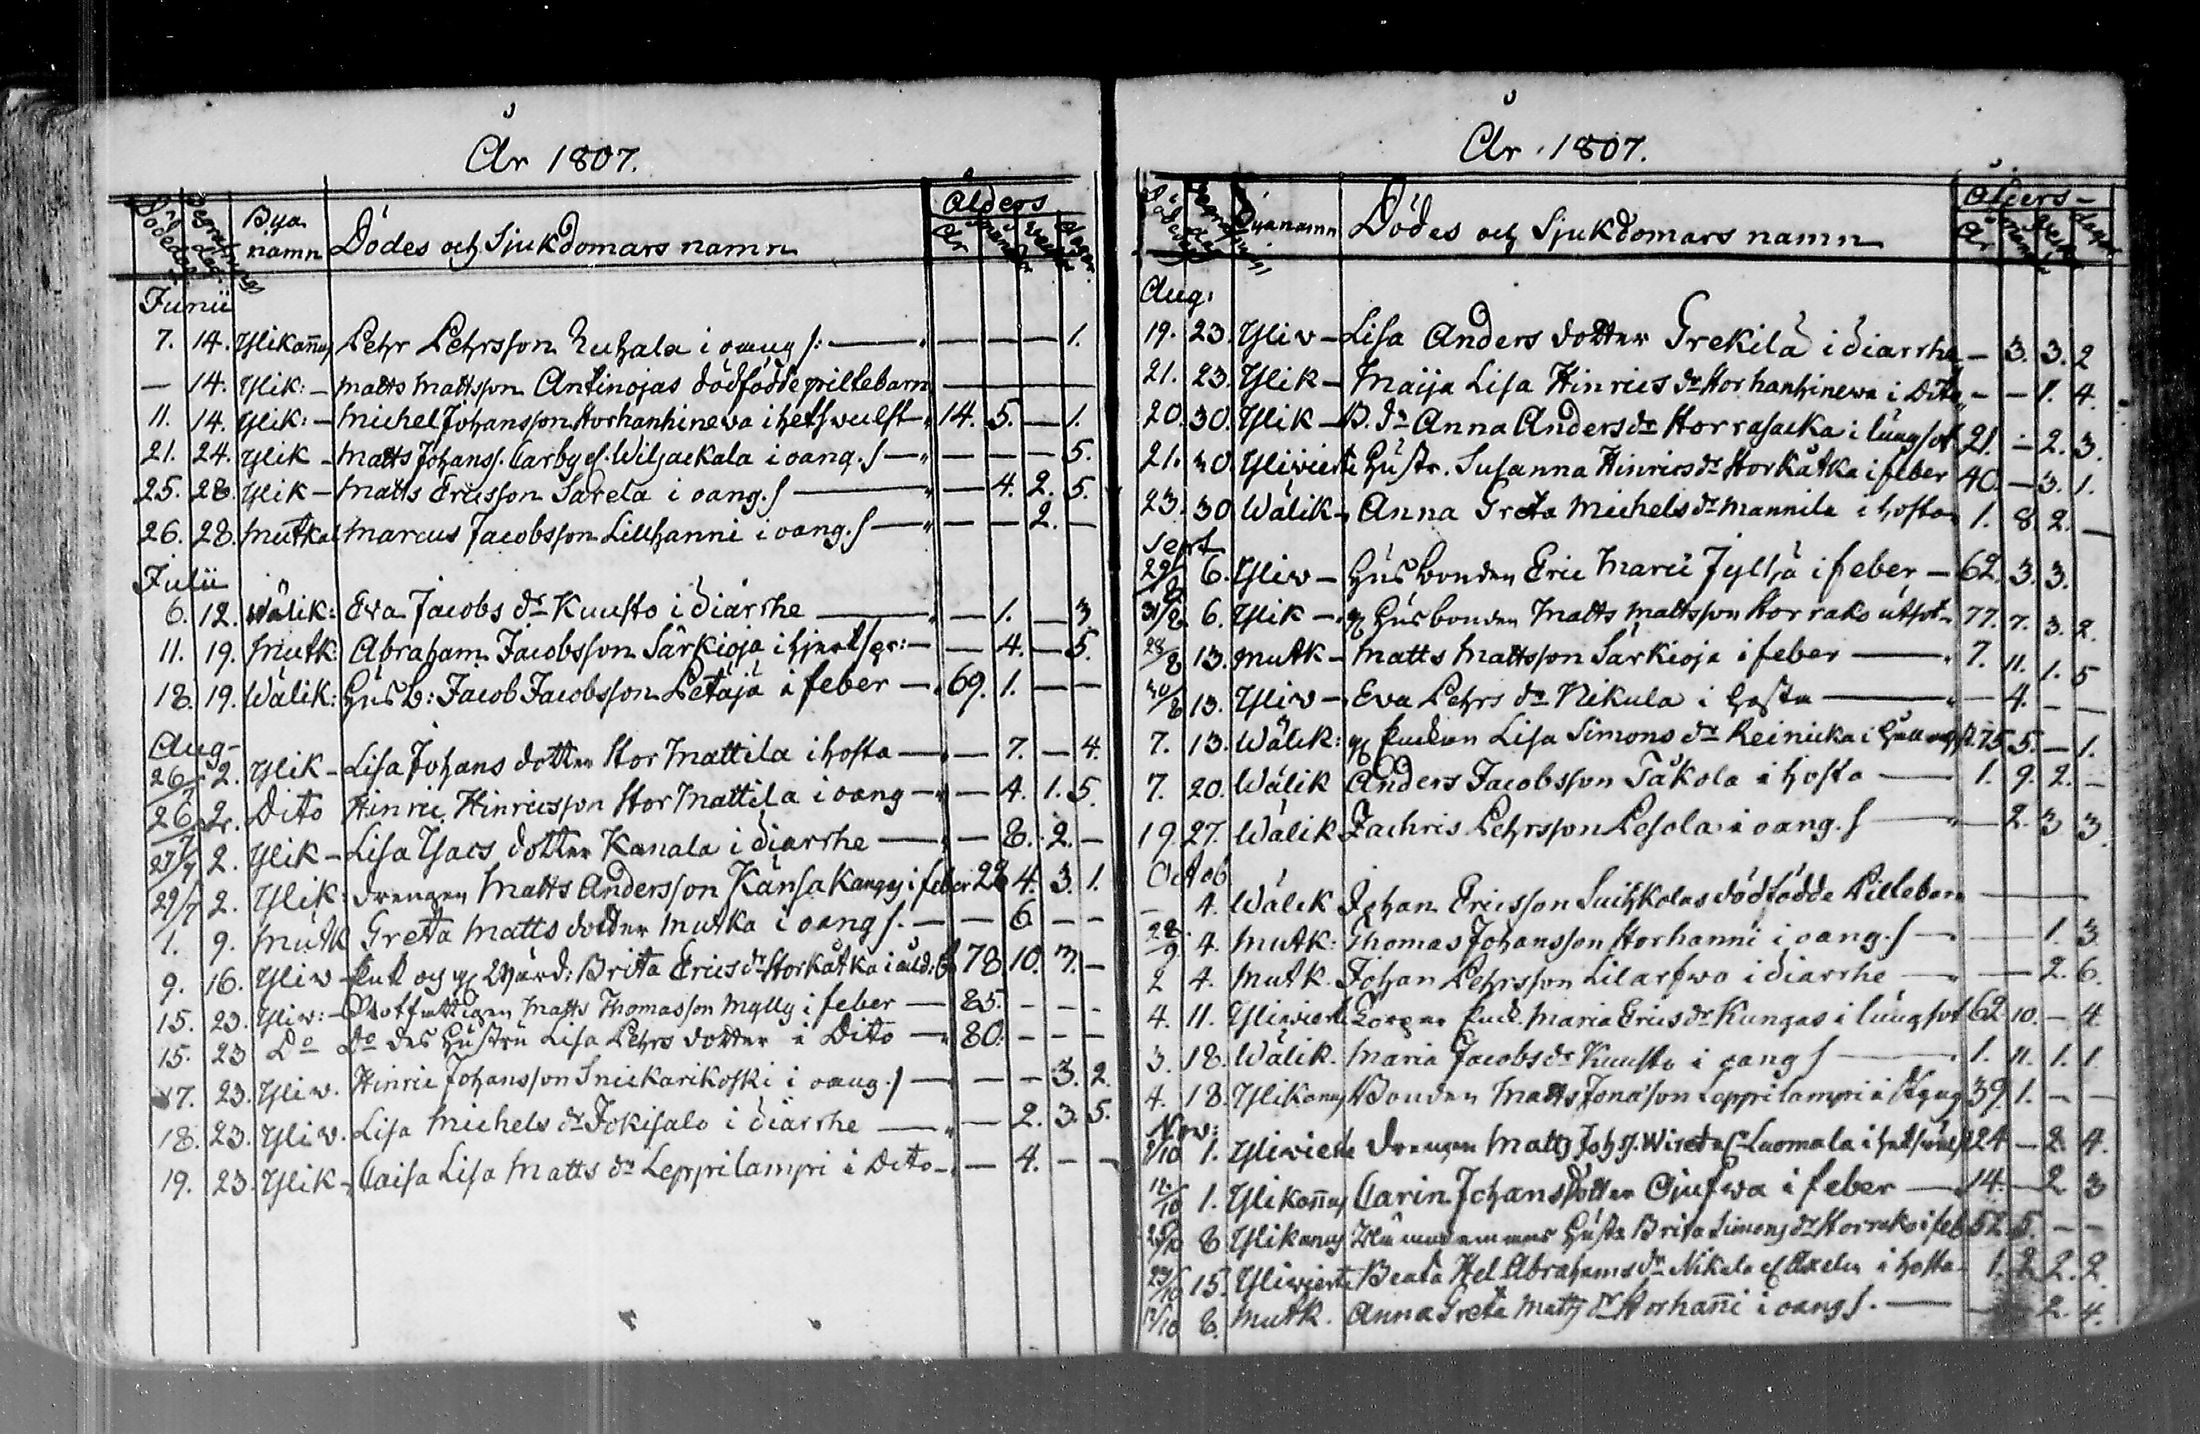 År 1807.
Dödedag Begrafnings dag Bya namn Dödes och Sjukdomars namn Ålders År Månader Veckor Dagar
Junii
7. 14. Ylikañus Pehr Pehrsson Euhala i oang s: — — — 1.
— 14. Ylik: Matts Mattsson Antinojas dödfödde pillebarn — — — —
11. 14. Ylik: Michel Johansson Storhanhineva i hetswulst 14. 5. — 1.
21. 24. Ylik Matts Johans s. Carby ef. Wiljackala i oang. s — — — 5.
25. 28. Ylik Matts Ericsson Sarela i oang. s — 4. 2. 5.
26. 28. Mutkal Marcus Jacobsson Lillhanni i oang. s — — 2. —
Julii
6. 12. Wälik: Eva Jacobs dr Kuusto i diarrhe — 1. — 3
11. 19. Mutk: Abraham Jacobsson Särkioja i — 4. — 5.
18. 19. Wälik: Husb: Jacob Jacobsson Petäjä i feber 69. 1. — —
Aug
26/7 2. Ylik Lisa Johans dotter Stor Mattila i hosta — 7. — 4.
26/7 2. Dito Hinric Hinricsson Stor Mattila i oang — 4. 1. 5.
27/7 2. Ylik Lisa Isacs dotter Kanala i diarrhe — 8. 2. —
29/7 2. Ylik: drengen Matts Andersson Känsakangas i feber 22 4. 3. 1.
1. 9. Mutk Greta Matts dotter Mutka i oang s. — 6 — —
9. 16. Yliv Enk och Brita Erics dr Storkåtka i 78 10. 3. —
15. 23. Yliv: Rotfattigen Matts Thomasson Mylly i feber 85. — — —
15. 23 Do Do des Hustru Lisa Pehrs dotter i Dito 80. — — —
17. 23. Yliv. Hinric Johansson Snickarikoski i oang. s — — 3. 2.
18. 23. Yliv. Lisa Michels dr Jokisalo i diarrhe — 2. 3. 5.
19. 23. Ylik Caisa Lisa Matts dr Leppilampi i Dito — 4. — —
År 1807.
Byanamn Dödes och Sjukdomars namn Ålders År
Aug:
19. 23. Yliv Lisa Anders dotter Grekilä i diarrhe — 3. 3. 2
21. 23. Ylik Maija Lisa Hinrics dr Storhanhineva i Dito — — 1. 4.
20. 30. Ylik B. dr Anna Anders dr Storrasacka i lungsot 21. — 2. 3.
21. 30 Yliviert Hustr. Susanna Hinrics dr Storkåtka i feber 40 — 3. 1.
23. 30 Wälik Anna Greta Michels dr Mannila i hosta 1. 8. 2. —
Sept
29/8 6. Yliv Husbonden Eric Marci Jylhä i feber 62. 3. 3.
31/8 6. Ylik Husbonden Matts Mattsson Storrako utsot 77. 7. 3. 2.
28/8 13. Mutk Matts Mattsson Särkioja i feber 7. 11. 1. 5
30/8 13. Yliv Eva Pehrs dr Nikula i hosta — 4. — —
7. 13. Wälik: Enkan Lisa Simons dr Reinicka i 75 5. — 1.
7. 20. Wälik Anders Jacobsson Taskola i hosta 1. 9. 2. —
19. 27. Wälik Zachris Pehrsson Pesola i oang. s — 2. 3 3.
Octob
— 4. Wälik Johan Ericsson Suihkolas dödfödde Pillebarn — — —
28/9 4. Mutk: Thomas Johansson Storhanni i oang. s — — 1. 3
2 4. Mutk. Johan Pehrsson Lilarfwo i diarrhe — — 2. 6.
4. 11. Yliviert Enk. Maria Erics dr Kungas i lungsot 62 10. — 4.
3. 18. Wälik. Maria Jacobs dr Kuusto i oang s 1. 11. 1. 1
4. 18. Ylikanus Bonden Matts Jonasson Leppilampi i 39. 1. — —
Nov:
9/10 1. Yliviert drengen Matts Joh s. ef. Luomala i 24 — 2. 4.
12/10 1. Ylikañus Carin Johans dotter Ojufwa i feber 14. — 2 3
25/10 8 Ylikanus Hustr Brita Simons dr Storrako i feb 52. 5. — —
23/10 15. Yliviert Beata Hel. Abrahams dr Nikula ef. i hosta 1. 2 2. 2.
17/10 8. Mutk. Anna Greta Matts dr Storhañi i oang s. — 2. 4.